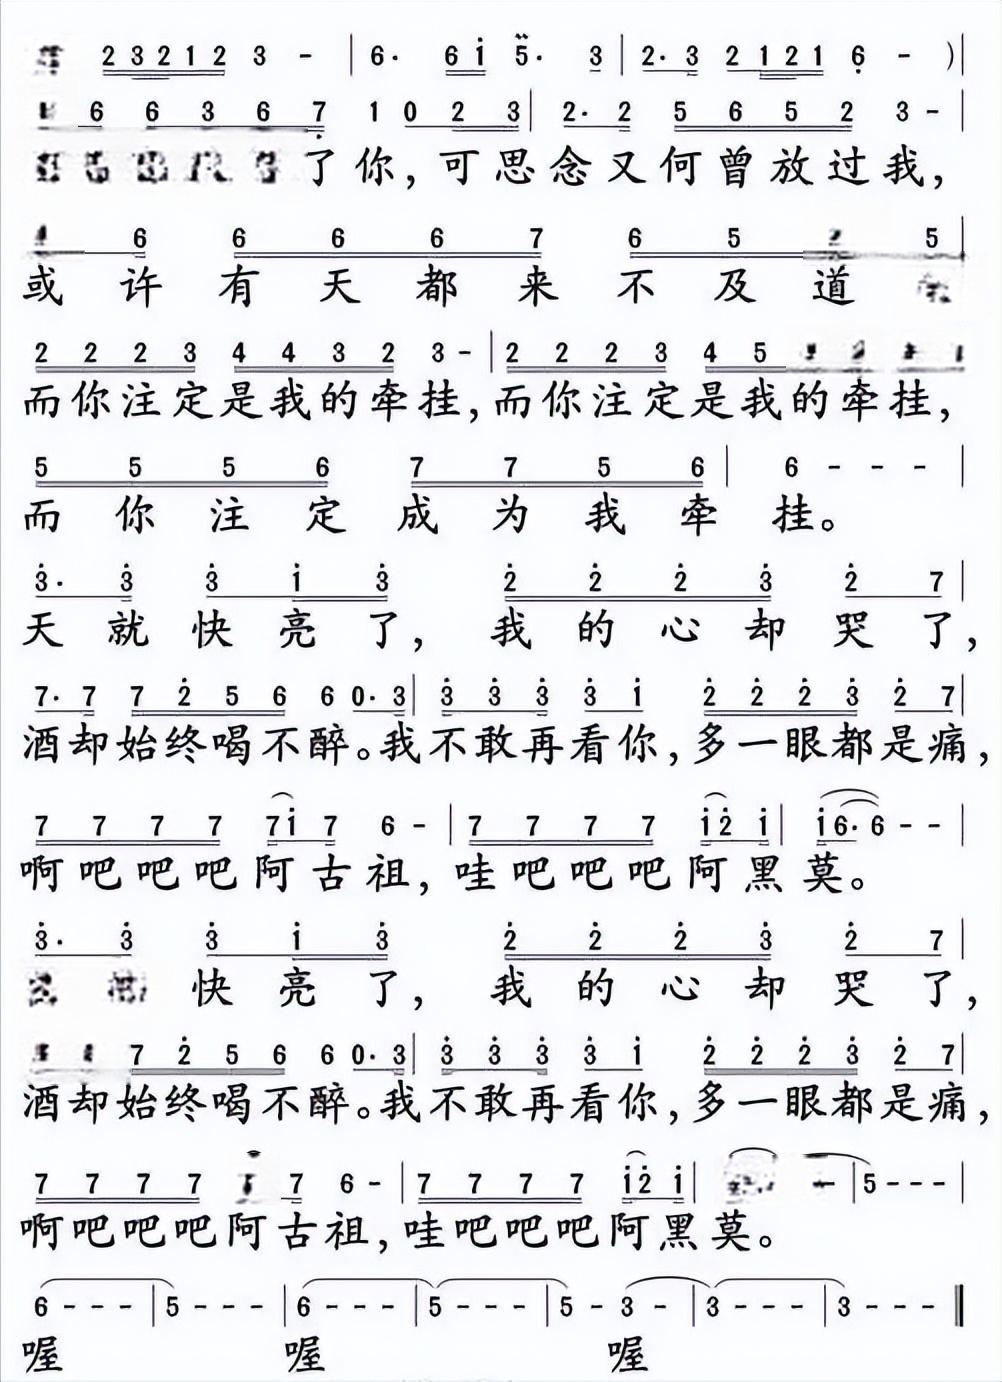 2 3 2 1 2 3 - | 6· 6 i 5· 3 | 2· 3 2 1 2 1 6 - )|
6 6 3 6 7 1 0 2 3 | 2· 2 5 6 5 2 3 - |
了你，可思念又何曾放过我，
6 6 6 6 7 6 5 5 |
或许有天都来不及道
2 2 2 3 4 4 3 2 3 - | 2 2 2 3 4 5
而你注定是我的牵挂，而你注定是我的牵挂，
5 5 5 6 7 7 5 6 | 6 - - - |
而你注定成为我牵挂。
3· 3 3 i 3 2 2 2 3 2 7 |
天就快亮了，我的心却哭了，
7· 7 7 2 5 6 6 0· 3 | 3 3 3 3 i 2 2 2 3 2 7 |
酒却始终喝不醉。我不敢再看你，多一眼都是痛，
7 7 7 7 7 i 7 6 - | 7 7 7 7 i 2 i | i 6· 6 - - |
啊吧吧吧阿古祖，哇吧吧吧阿黑莫。
3· 3 3 i 3 2 2 2 3 2 7 |
快亮了，我的心却哭了，
7 2 5 6 6 0· 3 | 3 3 3 3 i 2 2 2 3 2 7 |
酒却始终喝不醉。我不敢再看你，多一眼都是痛，
7 7 7 7 7 6 - | 7 7 7 7 i 2 i | - | 5 - - - |
啊吧吧吧阿古祖，哇吧吧吧阿黑莫。
6 - - - | 5 - - - | 6 - - - | 5 - - - | 5 - 3 - | 3 - - - | 3 - - - ‖
喔 喔 喔